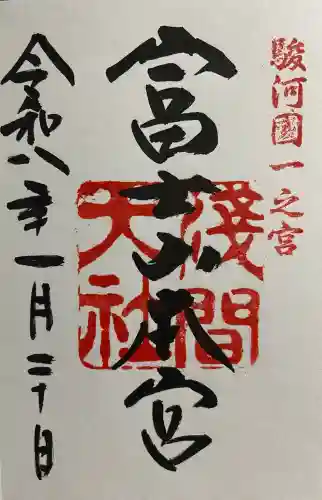 駿河國一之宮
富士山本宮
淺間大社
令和八年一月二十日